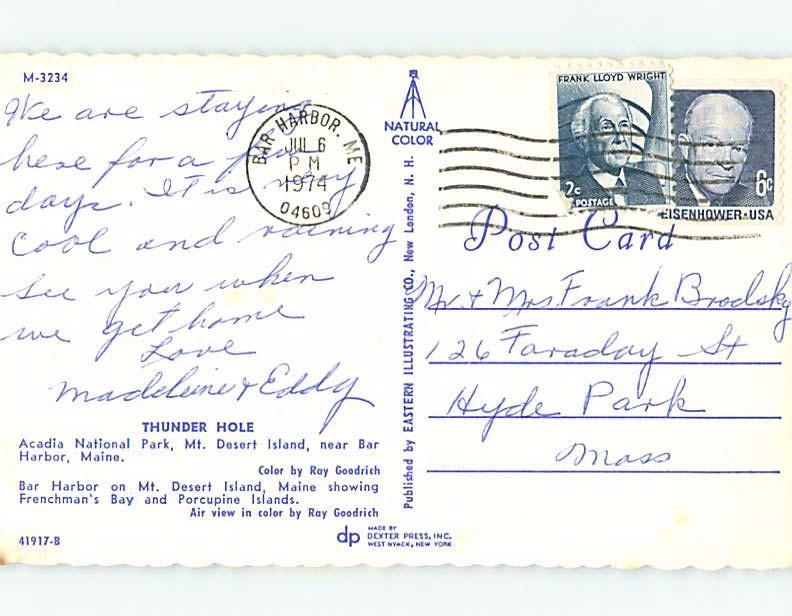 M-3234
We are staying
here for a few
days. It is very
cool and raining
See you when
we get home
Love
Madeleine & Eddy
THUNDER HOLE
Acadia National Park, Mt. Desert Island, near Bar
Harbor, Maine.
Color by Ray Goodrich
Bar Harbor on Mt. Desert Island, Maine showing
Frenchman's Bay and Porcupine Islands.
Air view in color by Ray Goodrich
41917-B
BAR HARBOR, ME
JUL 6
PM
1974
04609
NATURAL
COLOR
Published by EASTERN ILLUSTRATING CO., New London, N. H.
dp
MADE BY
DEXTER PRESS, INC.
WEST NYACK, NEW YORK
FRANK LLOYD WRIGHT
2c
POSTAGE
6c
EISENHOWER·USA
Post Card
Mr + Mrs Frank Brodsky
126 Faraday St
Hyde Park
Mass